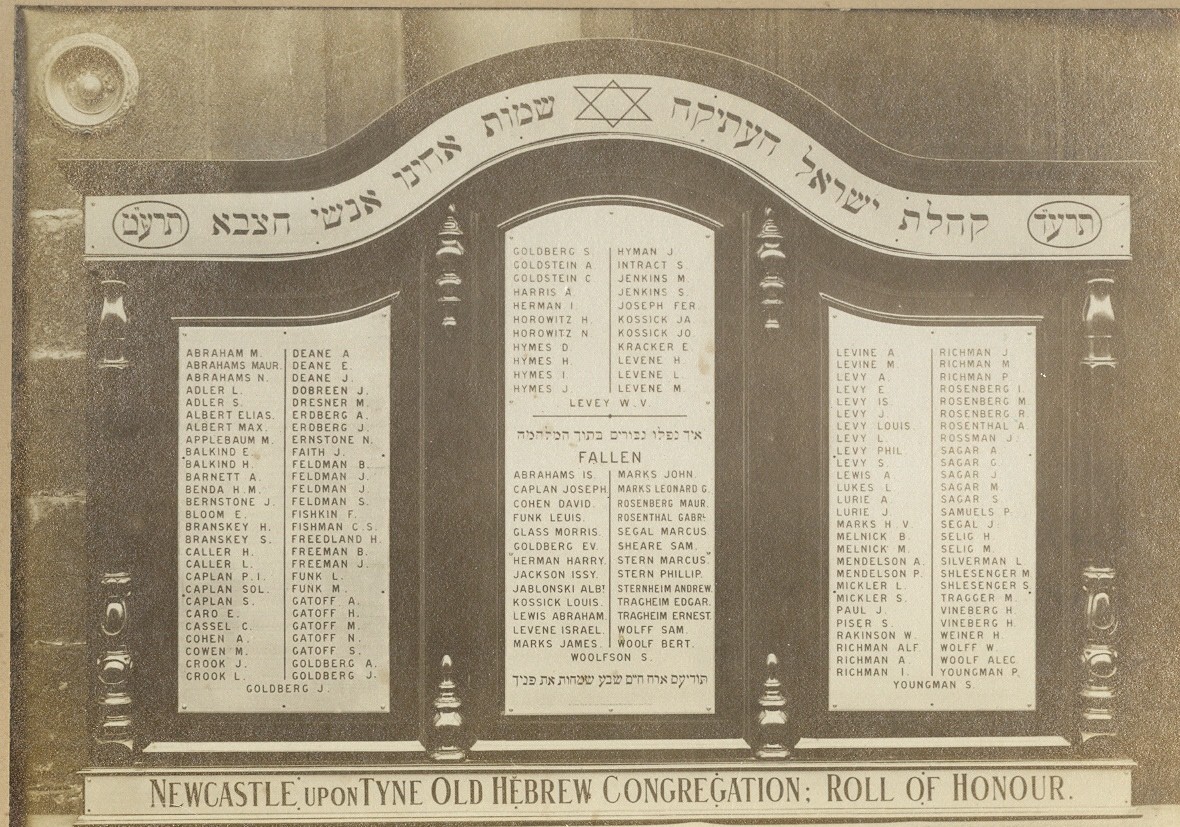 תרע״ד קהלת ישראל העתיקה שמות אחינו אנשי הצבא תרע״ט
ABRAHAM M.
ABRAHAMS MAUR.
ABRAHAMS N.
ADLER L.
ADLER S.
ALBERT ELIAS.
ALBERT MAX.
APPLEBAUM M.
BALKIND E.
BALKIND H.
BARNETT A.
BENDA H.M.
BERNSTONE J.
BLOOM E.
BRANSKEY H.
BRANSKEY S.
CALLER H.
CALLER L.
CAPLAN P.I.
CAPLAN SOL.
CAPLAN S.
CARO E.
CASSEL C.
COHEN A.
COWEN M.
CROOK J.
CROOK L.
DEANE A
DEANE E.
DEANE J.
DOBREEN J.
DRESNER M.
ERDBERG A.
ERDBERG J.
ERNSTONE N.
FAITH J.
FELDMAN B.
FELDMAN J.
FELDMAN J.
FELDMAN S.
FISHKIN F.
FISHMAN C.S.
FREEDLAND H.
FREEMAN B.
FREEMAN J.
FUNK L.
FUNK M.
GATOFF A.
GATOFF H.
GATOFF M.
GATOFF N.
GATOFF S.
GOLDBERG A.
GOLDBERG J.
GOLDBERG J.
GOLDBERG S.
GOLDSTEIN A
GOLDSTEIN C
HARRIS A.
HERMAN I.
HOROWITZ H.
HOROWITZ N.
HYMES D.
HYMES H.
HYMES I.
HYMES J.
HYMAN J.
INTRACT S.
JENKINS M.
JENKINS S.
JOSEPH FER.
KOSSICK JA.
KOSSICK JO.
KRACKER E.
LEVENE H.
LEVENE L.
LEVENE M.
LEVEY W.V.
איך נפלו גבורים בתוך המלחמה
FALLEN
ABRAHAMS IS.
CAPLAN JOSEPH.
COHEN DAVID.
FUNK LEUIS.
GLASS MORRIS.
GOLDBERG EV.
HERMAN HARRY.
JACKSON ISSY.
JABLONSKI ALBT.
KOSSICK LOUIS.
LEWIS ABRAHAM.
LEVENE ISRAEL.
MARKS JAMES.
MARKS JOHN.
MARKS LEONARD G.
ROSENBERG MAUR.
ROSENTHAL GABRL.
SEGAL MARCUS.
SHEARE SAM.
STERN MARCUS.
STERN PHILLIP.
STERNHEIM ANDREW.
TRAGHEIM EDGAR.
TRAGHEIM ERNEST.
WOLFF SAM.
WOOLF BERT.
WOOLFSON S.
תודיעם ארח חיים שבע שמחות את פניך
LEVINE A
LEVINE M
LEVY A.
LEVY E.
LEVY IS.
LEVY J.
LEVY LOUIS.
LEVY L.
LEVY PHIL.
LEVY S.
LEWIS A.
LUKES L
LURIE A.
LURIE J.
MARKS H.V.
MELNICK B.
MELNICK M.
MENDELSON A.
MENDELSON P.
MICKLER L.
MICKLER S.
PAUL J.
PISER S.
RAKINSON W.
RICHMAN ALF.
RICHMAN A.
RICHMAN I.
RICHMAN J
RICHMAN M
RICHMAN P.
ROSENBERG I.
ROSENBERG M.
ROSENBERG R.
ROSENTHAL A.
ROSSMAN J.
SAGAR A.
SAGAR G.
SAGAR J.
SAGAR M.
SAGAR S.
SAMUELS P.
SEGAL J.
SELIG H.
SELIG M.
SILVERMAN L
SHLESENGER M.
SHLESENGER S.
TRAGGER M.
VINEBERG H.
VINEBERG H.
WEINER H.
WOLFF W.
WOOLF ALEC.
YOUNGMAN P.
YOUNGMAN S.
NEWCASTLE UPON TYNE OLD HEBREW CONGREGATION; ROLL OF HONOUR.